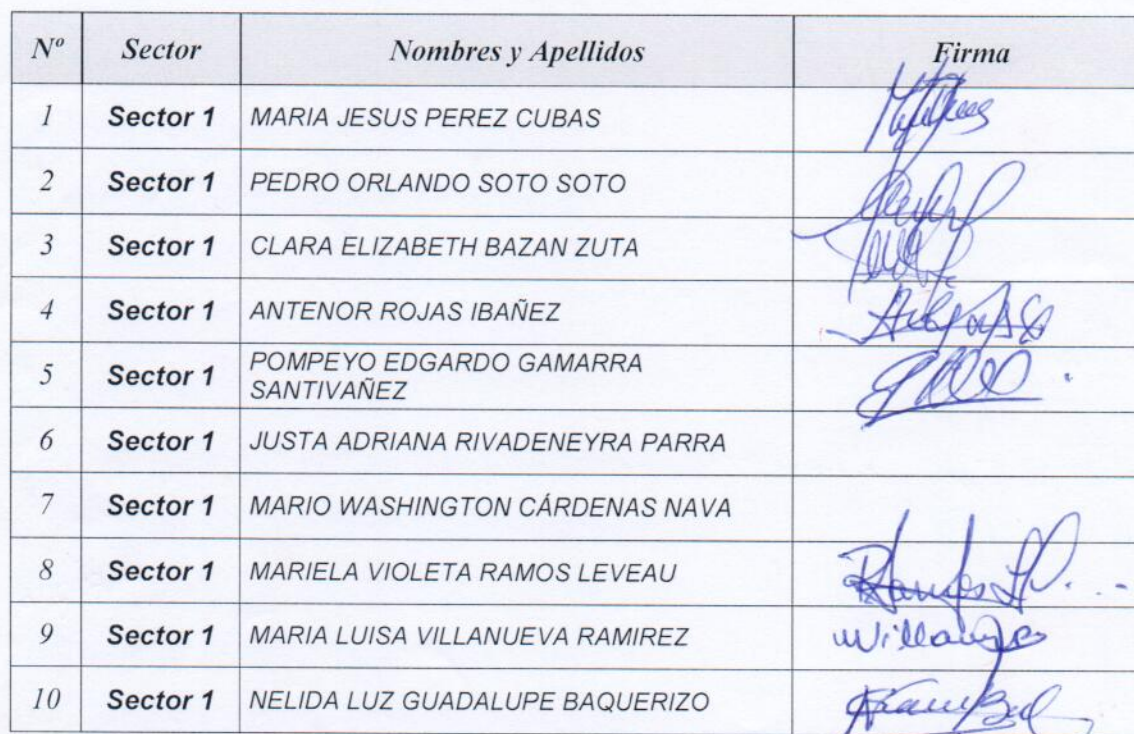 Nº Sector Nombres y Apellidos Firma
1 Sector 1 MARIA JESUS PEREZ CUBAS
2 Sector 1 PEDRO ORLANDO SOTO SOTO
3 Sector 1 CLARA ELIZABETH BAZAN ZUTA
4 Sector 1 ANTENOR ROJAS IBAÑEZ
5 Sector 1 POMPEYO EDGARDO GAMARRA
SANTIVAÑEZ
6 Sector 1 JUSTA ADRIANA RIVADENEYRA PARRA
7 Sector 1 MARIO WASHINGTON CÁRDENAS NAVA
8 Sector 1 MARIELA VIOLETA RAMOS LEVEAU
9 Sector 1 MARIA LUISA VILLANUEVA RAMIREZ
10 Sector 1 NELIDA LUZ GUADALUPE BAQUERIZO